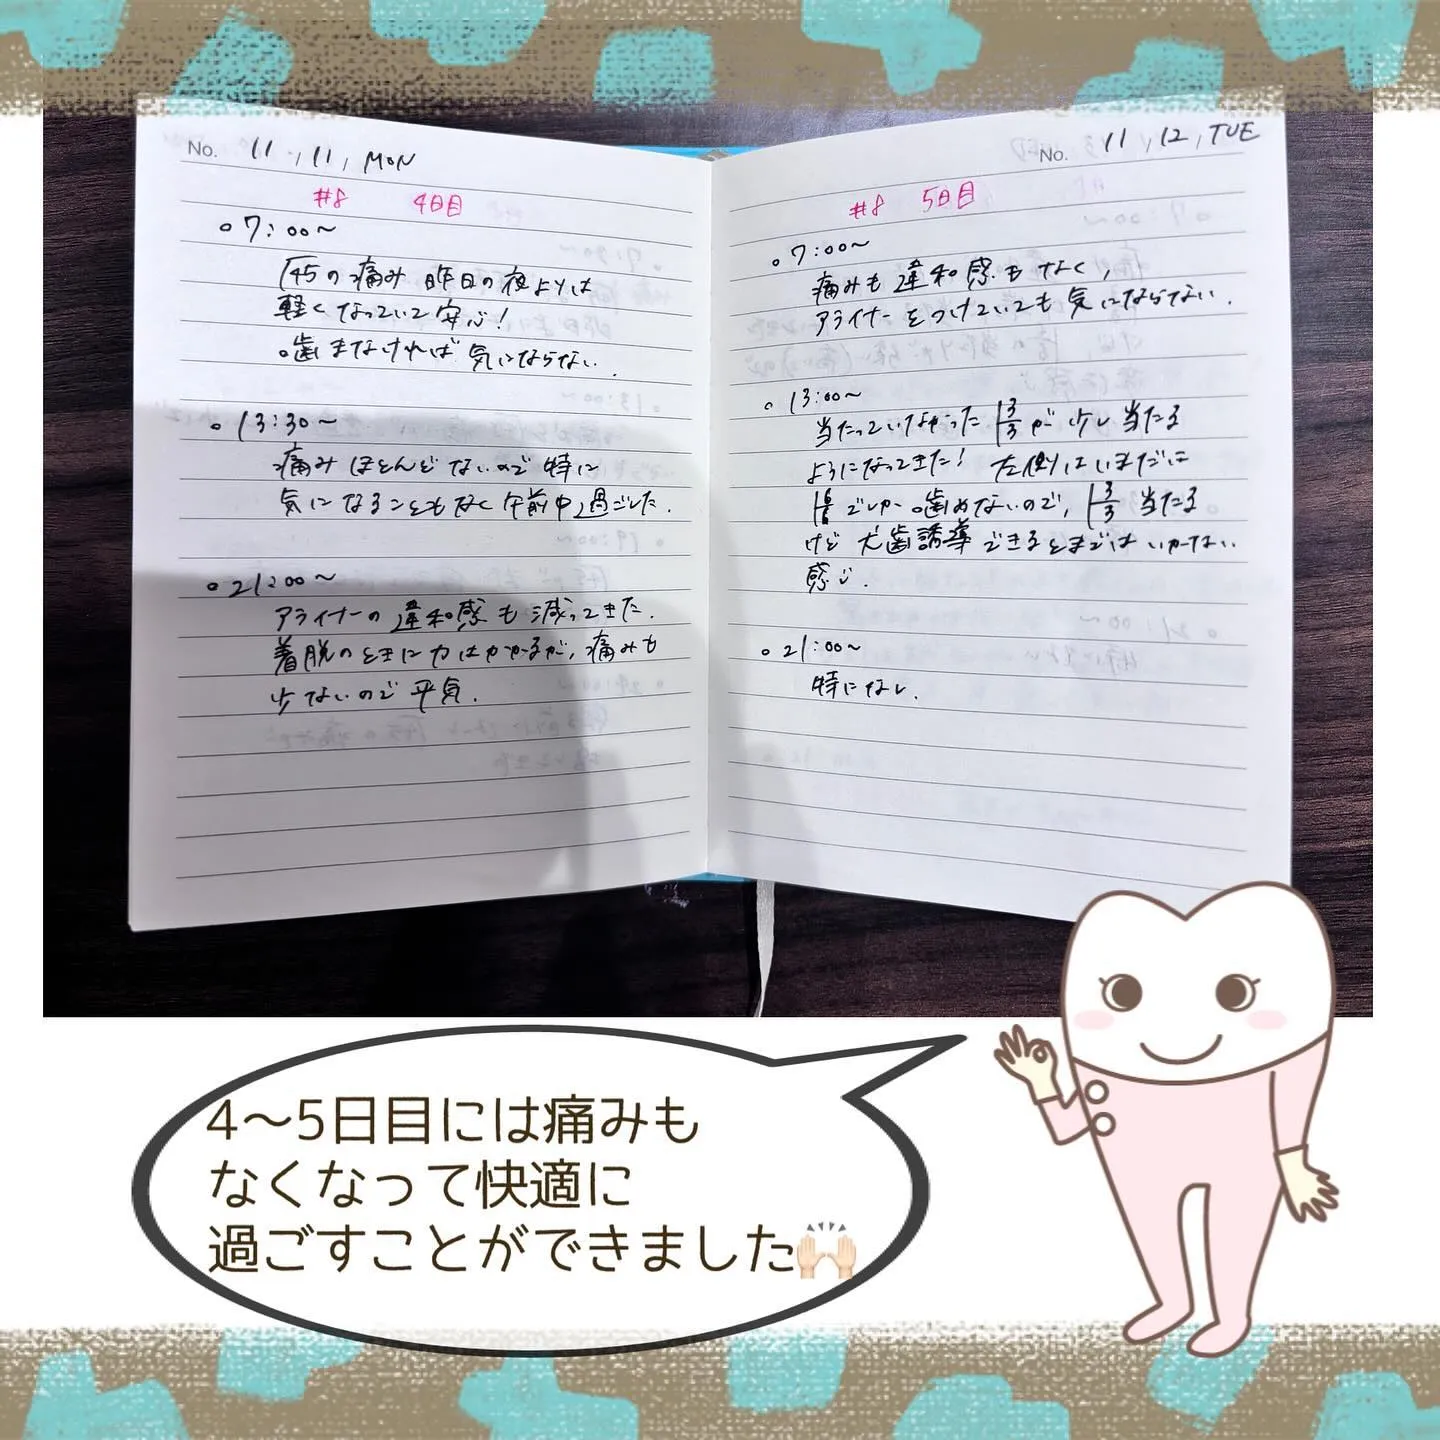 No. 11, 11, MON
#8 4日目
○7:00～
45の痛み 昨日の夜よりは
軽くなっていて安心!
歯まなければ気にならない.
○13:30～
痛みほとんどないので特に
気になることもなく午前中過ごした.
○21:00～
アライナーの違和感も減ってきた.
着脱のときに力はかかるが, 痛みも
少ないので平気.
No. 11, 12, TUE
#8 5日目
○7:00～
痛みも違和感もなく,
アライナーをつけていても気にならない.
○13:00～
当たっていなかった 3/3 が少し当たる
ようになってきた! 左側はいまだに
でしか噛めないので, 3/3 当たる
けど犬歯誘導できるとまではいかない
感じ.
○21:00～
特になし.
4～5日目には痛みも
なくなって快適に
過ごすことができました🙌🏻